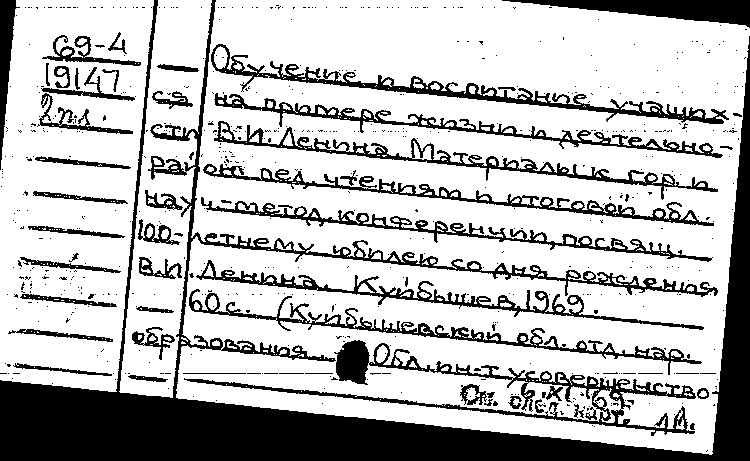 69-4
19147
2 пл.
Обучение и воспитание учащих-
ся на примере жизни и деятельно-
сти В.И. Ленина. Материалы к гор. и
район. пед. чтениям и итоговой обл.
науч.-метод. конференции, посвящ.
100-летнему юбилею со дня рождения
В.И. Ленина. Куйбышев, 1969.
60 с. (Куйбышевский обл. отд. нар.
образования. Обл. ин-т усовершенство-
6.XI.69
См. след. карт.